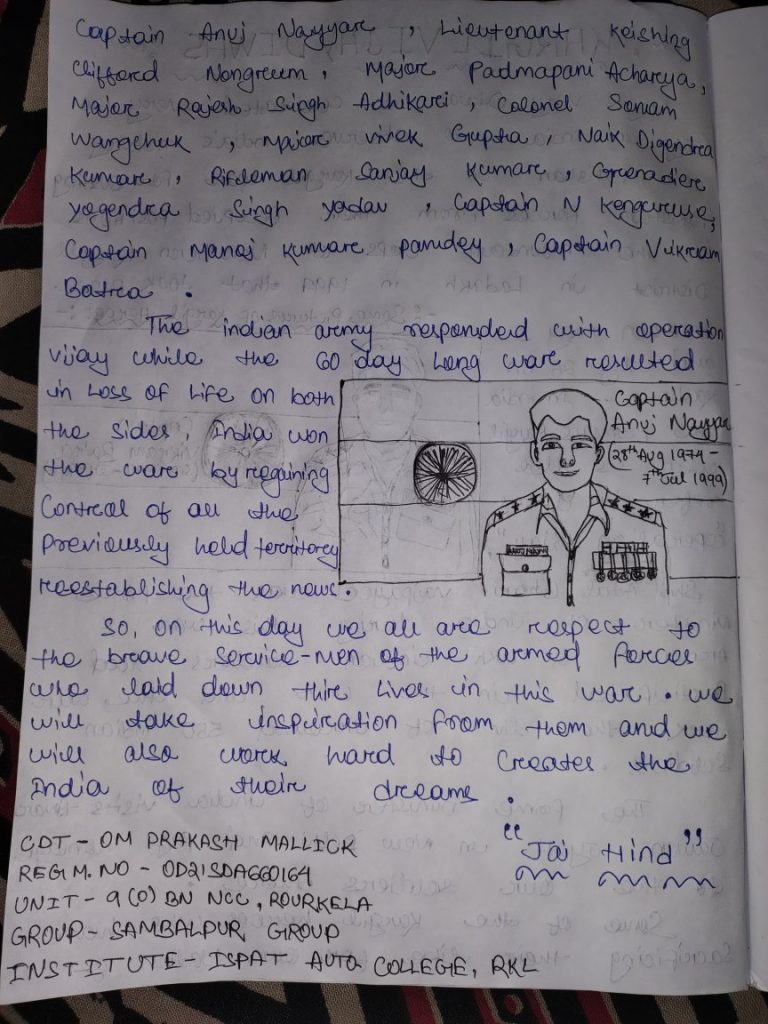 Captain Anuj Nayyare, Lieutenant Keishing
Clifford Nongreum, Major Padmapani Achareya,
Major Rajesh Singh Adhikarei, Colonel Sonam
Wangchuk, Majore vivek Gupta, Naik Digendrea
Kumare, Rifleman Sanjay Kumare, Grenadiere
Yogendrea Singh yadav, Captain N Kengureuse,
Captain Manoj Kumare pandey, Captain Vikream
Batrea.
The indian army responded with operation
vijay while the 60 day Long ware resulted
in Loss of Life on both
the sides. India won
the ware by regaining
Control of all the
Previously held territorey
reestablishing the news.
Captain
Anuj Nayyar
(28th Aug 1974 -
7th Jul 1999)
So, on this day we all are respect to
the brave service-men of the armed forces
who laid down thire Lives in this war. we
will take inspiration from them and we
will also work hard to Creates the
India of their dreams.
"Jai Hind"
CDT - OM PRAKASH MALLICK
REGIM. NO - OD21SDA660164
UNIT - 9 (O) BN NCC, ROURKELA
GROUP - SAMBALPUR GROUP
INSTITUTE - ISPAT AUTO COLLEGE, RKL